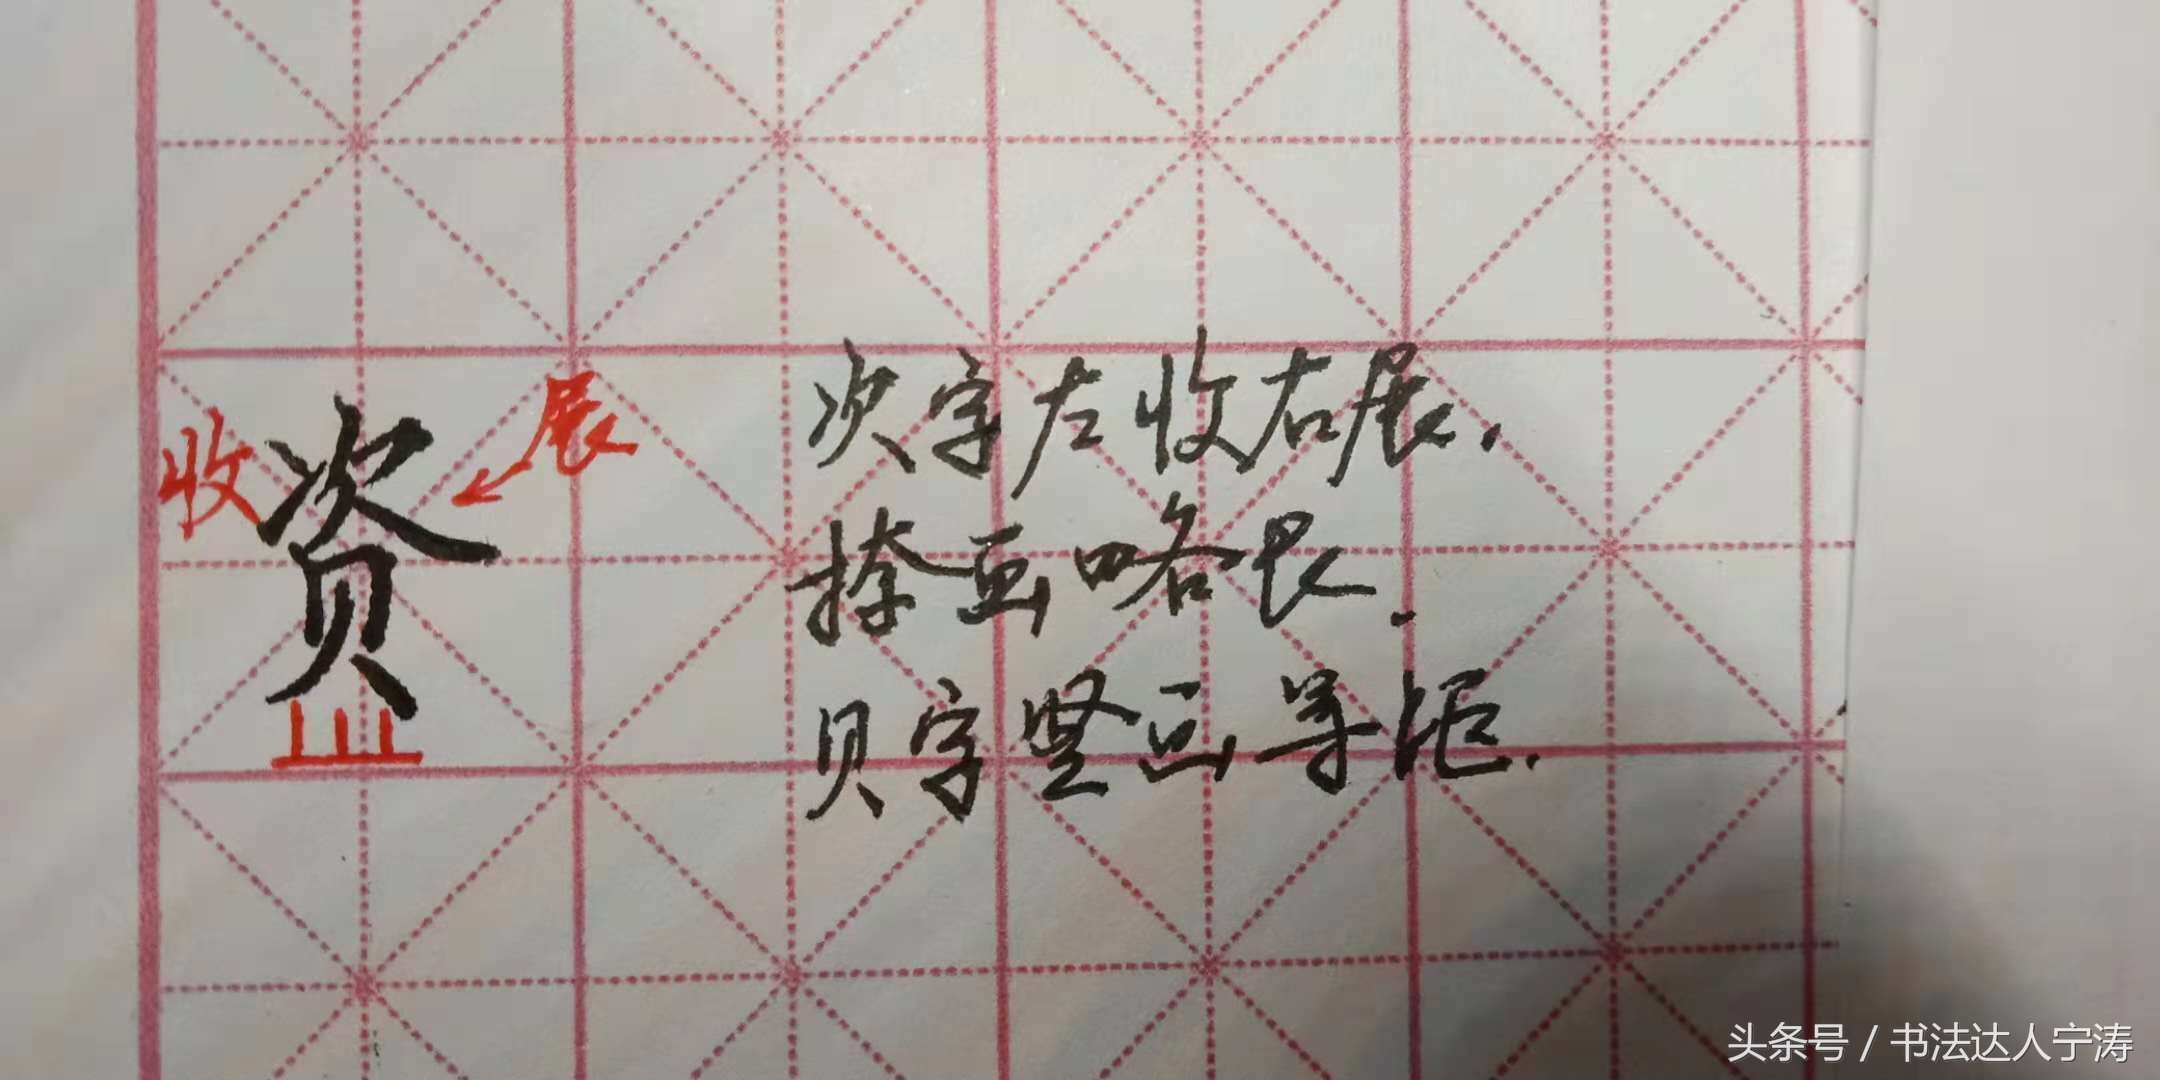 资
收
展
次字左收右展.
捺画略长.
贝字竖画等距.
头条号 / 书法达人宁涛